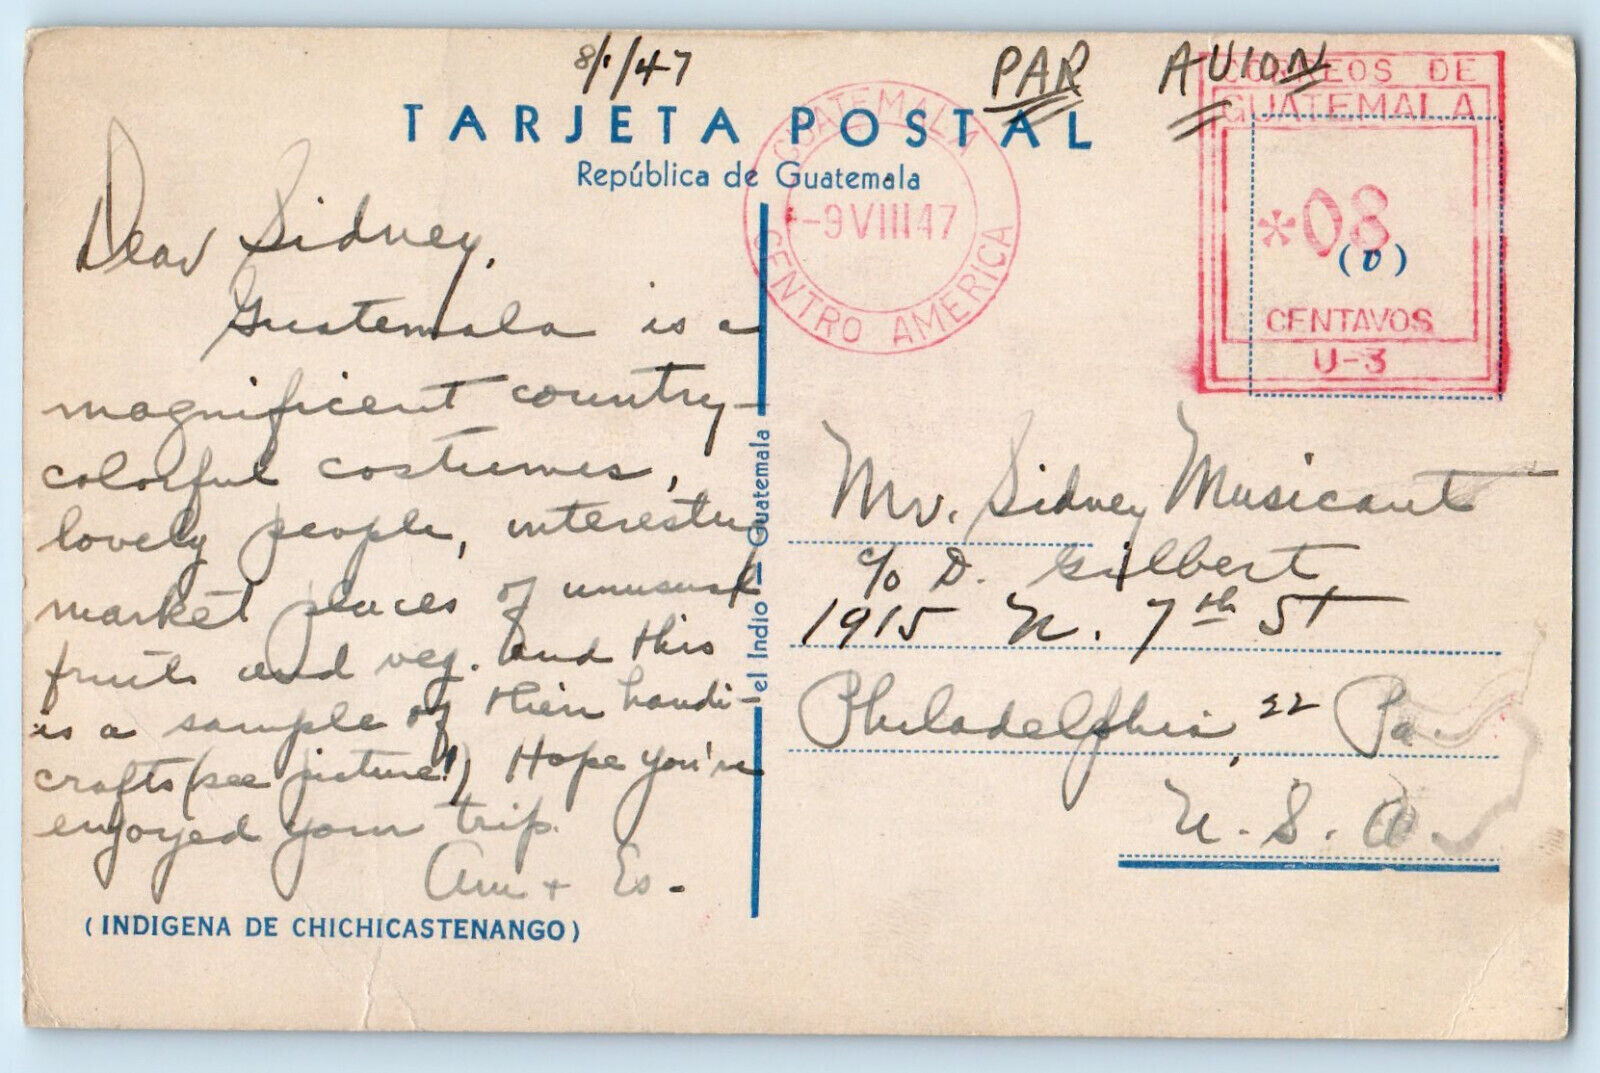 8/1/47
PAR AVION
TARJETA POSTAL
República de Guatemala
GUATEMALA
-9VIII47
CENTRO AMERICA
CORREOS DE
GUATEMALA
*08
(0)
CENTAVOS
U-3
Dear Sidney,
Guatemala is a
magnificent country-
colorful costumes,
lovely people, interesting
market places of unusual
fruits and veg. and this
is a sample of their handi-
crafts (see picture!) Hope you've
enjoyed your trip.
Ann + Es-
(INDIGENA DE CHICHICASTENANGO)
el Indio - Guatemala
Mr. Sidney Musicant
c/o D. Gilbert
1915 N. 7th St
Philadelphia, 22 Pa.
U.S.A.